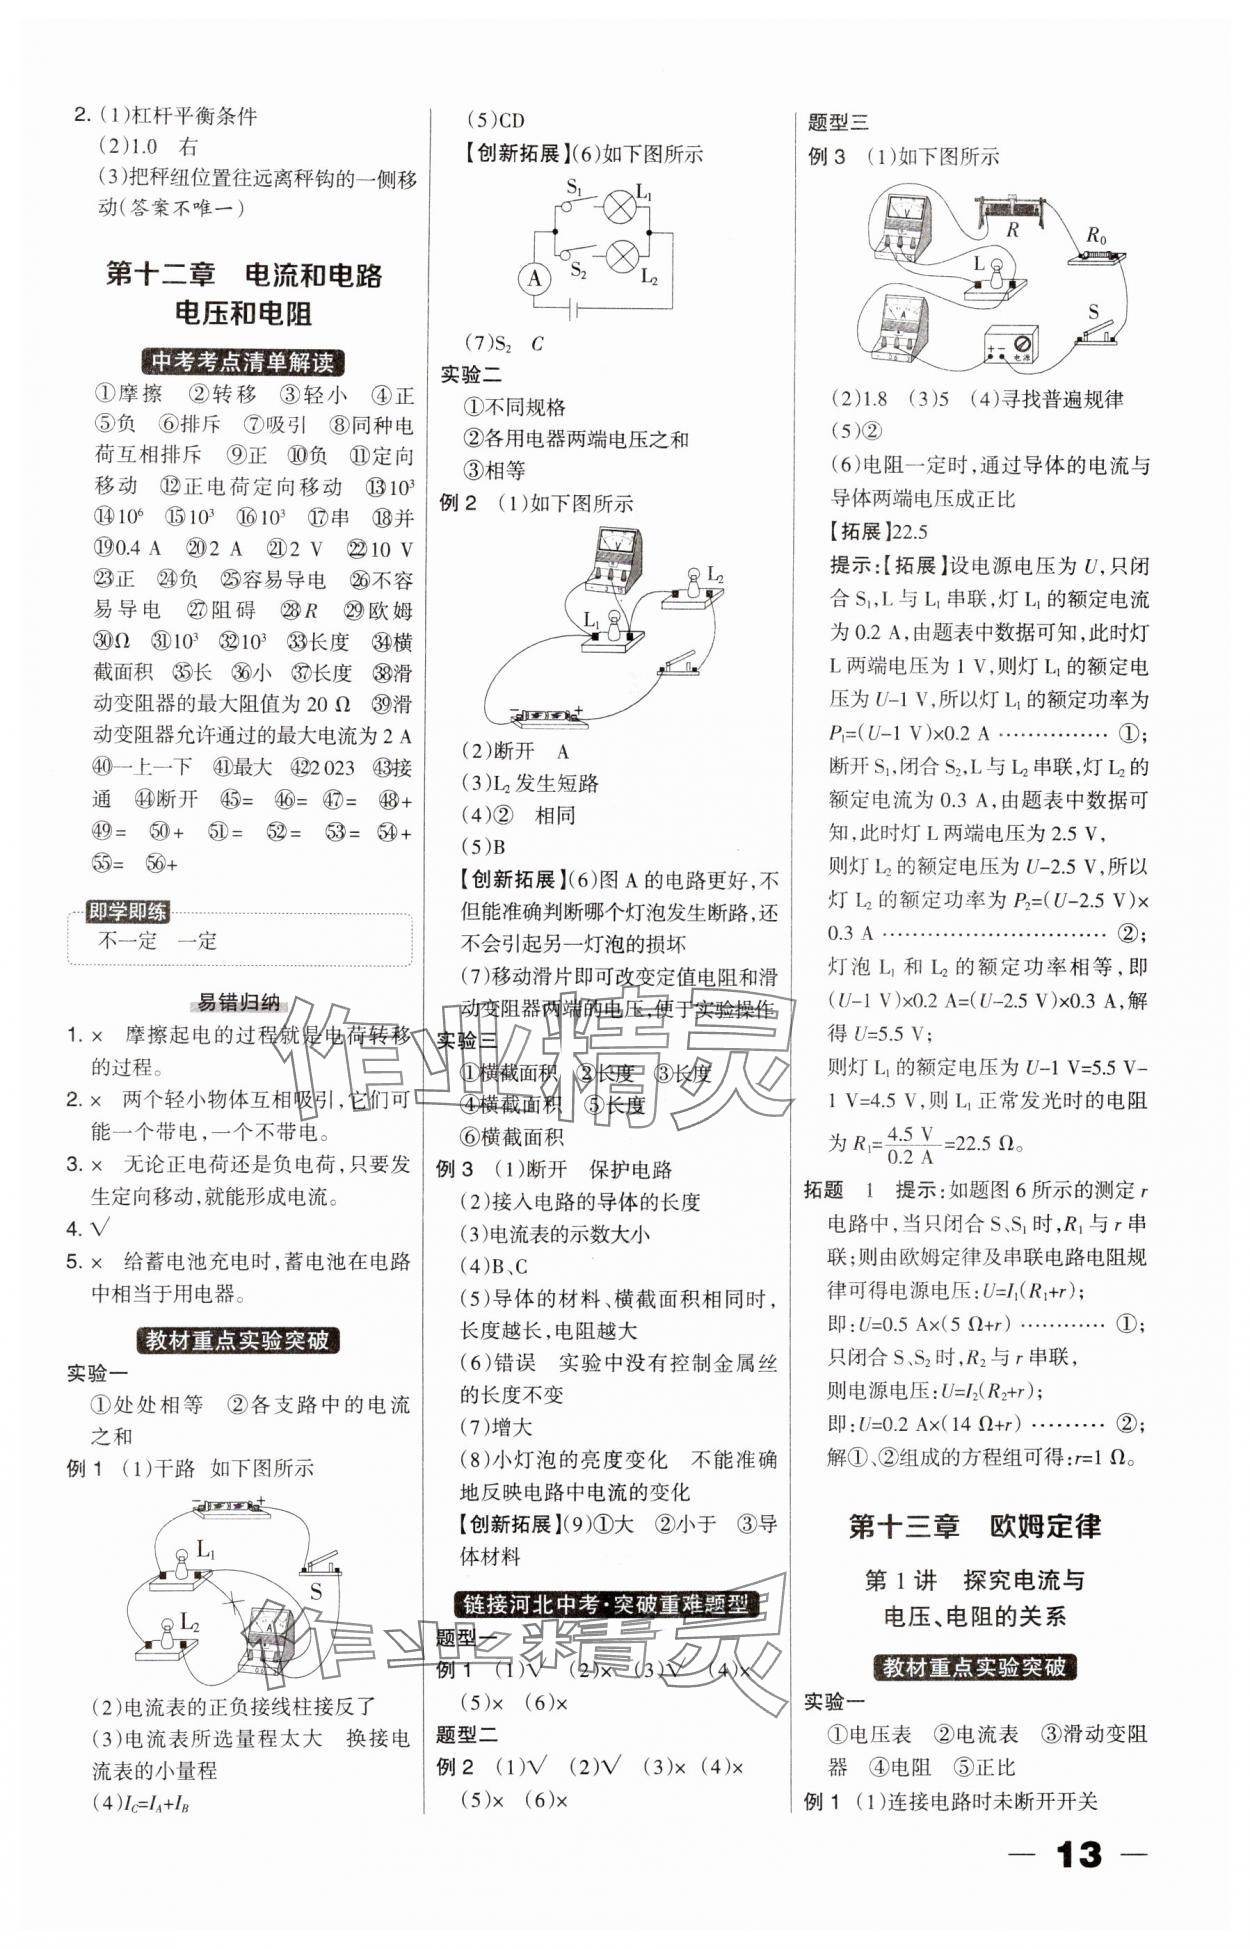 2. (1)杠杆平衡条件
(2)1.0 右
(3)把秤纽位置往远离秤钩的一侧移
动(答案不唯一)
第十二章 电流和电路
电压和电阻
中考考点清单解读
①摩擦 ②转移 ③轻小 ④正
⑤负 ⑥排斥 ⑦吸引 ⑧同种电
荷互相排斥 ⑨正 ⑩负 ⑪定向
移动 ⑫正电荷定向移动 ⑬10³
⑭10⁶ ⑮10³ ⑯10³ ⑰串 ⑱并
⑲0.4 A ⑳2 A ㉑2 V ㉒10 V
㉓正 ㉔负 ㉕容易导电 ㉖不容
易导电 ㉗阻碍 ㉘R ㉙欧姆
㉚Ω ㉛10³ ㉜10³ ㉝长度 ㉞横
截面积 ㉟长 ㊱小 ㊲长度 ㊳滑
动变阻器的最大阻值为 20 Ω ㊴滑
动变阻器允许通过的最大电流为 2 A
㊵一上一下 ㊶最大 ㊷2 023 ㊸接
通 ㊹断开 ㊺= ㊻= ㊼= ㊽+
㊾= ㊿+ 51= 52= 53= 54+
55= 56+
即学即练
不一定 一定
易错归纳
1. × 摩擦起电的过程就是电荷转移
的过程。
2. × 两个轻小物体互相吸引,它们可
能一个带电,一个不带电。
3. × 无论正电荷还是负电荷,只要发
生定向移动,就能形成电流。
4. √
5. × 给蓄电池充电时,蓄电池在电路
中相当于用电器。
教材重点实验突破
实验一
①处处相等 ②各支路中的电流
之和
例 1 (1)干路 如下图所示
− +
L₁
S
L₂
A
(2)电流表的正负接线柱接反了
(3)电流表所选量程太大 换接电
流表的小量程
(4)I_C=I_A+I_B
(5)CD
【创新拓展】(6)如下图所示
S₁ L₁
S₂ L₂
A
(7)S₂ C
实验二
①不同规格
②各用电器两端电压之和
③相等
例 2 (1)如下图所示
V
L₂
L₁
− +
(2)断开 A
(3)L₂ 发生短路
(4)② 相同
(5)B
【创新拓展】(6)图 A 的电路更好,不
但能准确判断哪个灯泡发生断路,还
不会引起另一灯泡的损坏
(7)移动滑片即可改变定值电阻和滑
动变阻器两端的电压,便于实验操作
实验三
①横截面积 ②长度 ③长度
④横截面积 ⑤长度
⑥横截面积
例 3 (1)断开 保护电路
(2)接入电路的导体的长度
(3)电流表的示数大小
(4)B、C
(5)导体的材料、横截面积相同时,
长度越长,电阻越大
(6)错误 实验中没有控制金属丝
的长度不变
(7)增大
(8)小灯泡的亮度变化 不能准确
地反映电路中电流的变化
【创新拓展】(9)①大 ②小于 ③导
体材料
链接河北中考·突破重难题型
题型一
例 1 (1)√ (2)× (3)√ (4)×
(5)× (6)×
题型二
例 2 (1)√ (2)√ (3)× (4)×
(5)× (6)×
题型三
例 3 (1)如下图所示
V
R
R₀
L
A
S
− +
电源
(2)1.8 (3)5 (4)寻找普遍规律
(5)②
(6)电阻一定时,通过导体的电流与
导体两端电压成正比
【拓展】22.5
提示:【拓展】设电源电压为 U,只闭
合 S₁,L 与 L₁ 串联,灯 L₁ 的额定电流
为 0.2 A,由题表中数据可知,此时灯
L 两端电压为 1 V,则灯 L₁ 的额定电
压为 U−1 V,所以灯 L₁ 的额定功率为
P₁=(U−1 V)×0.2 A …………… ①;
断开 S₁,闭合 S₂,L 与 L₂ 串联,灯 L₂ 的
额定电流为 0.3 A,由题表中数据可
知,此时灯 L 两端电压为 2.5 V,
则灯 L₂ 的额定电压为 U−2.5 V,所以
灯 L₂ 的额定功率为 P₂=(U−2.5 V)×
0.3 A ………………………… ②;
灯泡 L₁ 和 L₂ 的额定功率相等,即
(U−1 V)×0.2 A=(U−2.5 V)×0.3 A,解
得 U=5.5 V;
则灯 L₁ 的额定电压为 U−1 V=5.5 V−
1 V=4.5 V,则 L₁ 正常发光时的电阻
为 R₁=4.5 V/0.2 A=22.5 Ω。
拓题 1 提示:如题图 6 所示的测定 r
电路中,当只闭合 S、S₁ 时,R₁ 与 r 串
联;则由欧姆定律及串联电路电阻规
律可得电源电压:U=I₁(R₁+r);
即:U=0.5 A×(5 Ω+r) ………… ①;
只闭合 S、S₂ 时,R₂ 与 r 串联,
则电源电压:U=I₂(R₂+r);
即:U=0.2 A×(14 Ω+r) ……… ②;
解①、②组成的方程组可得:r=1 Ω。
第十三章 欧姆定律
第 1 讲 探究电流与
电压、电阻的关系
教材重点实验突破
实验一
①电压表 ②电流表 ③滑动变阻
器 ④电阻 ⑤正比
例 1 (1)连接电路时未断开开关
— 13 —
作业精灵
作业精灵